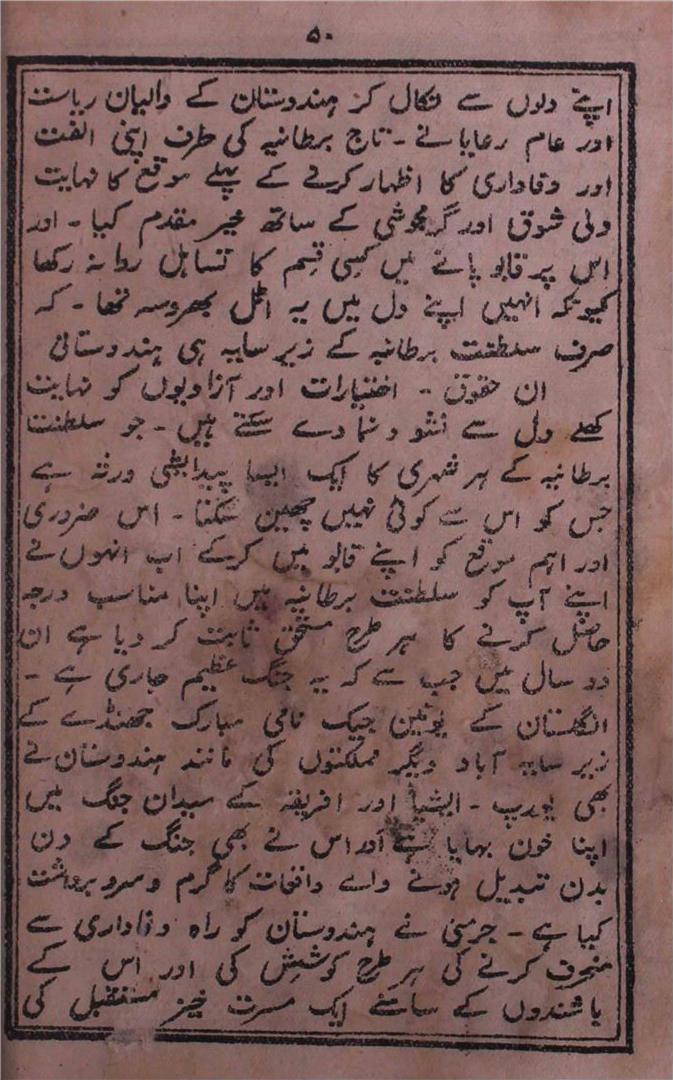 ۵۰
اپنے دلوں سے نکال کر ہندوستان کے والیان ریاست
اور عام رعایا نے - تاج برطانیہ کی طرف اپنی الفت
اور وفاداری کا اظہار کرنے کے پہلے موقع کا نہایت
دلی شوق اور گرمجوشی کے ساتھ خیر مقدم کیا - اور
اس پر قابو پانے میں کسی قسم کا تساہل روا نہ رکھا
کیونکہ انہیں اپنے دل میں یہ اٹل بھروسہ تھا - کہ
صرف سلطنت برطانیہ کے زیر سایہ ہی ہندوستانی
ان حقوق - اختیارات اور آزادیوں کو نہایت
کھلے دل سے نشو و نما دے سکتے ہیں - جو سلطنت
برطانیہ کے ہر شہری کا ایک ایسا پیدایشی ورثہ ہے
جس کو اس سے کوئی نہیں چھین سکتا - اس ضروری
اور اہم موقع کو اپنے قابو میں کرکے اب انھوں نے
اپنے آپ کو سلطنت برطانیہ میں اپنا مناسب درجہ
حاصل کرنے کا ہر طرح مستحق ثابت کر دیا ہے ان
دو سال میں جب سے کہ یہ جنگ عظیم جاری ہے -
انگلستان کے یونین جیک نامی مبارک جھنڈے کے
زیر سایہ آباد دیگر مملکتوں کی مانند ہندوستان نے
بھی یورپ - ایشیا اور افریقہ کے میدان جنگ میں
اپنا خون بہایا ہے اور اس نے بھی جنگ کے دن
بدن تبدیل ہونے والے واقعات کا گرم و سرد برداشت
کیا ہے - جرمنی نے ہندوستان کو راہ وفاداری سے
منحرف کرنے کی ہر طرح کوشش کی اور اس کے
باشندوں کے سامنے ایک مسرت خیز مستقبل کی